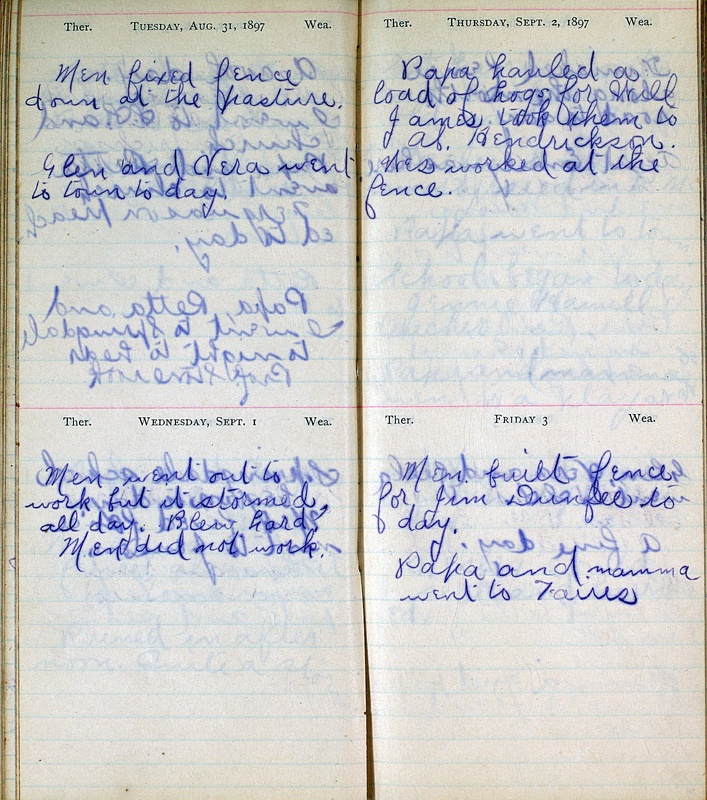 Ther. TUESDAY, AUG. 31, 1897 Wea.
Men fixed fence
down at the pasture.
Glen and Vera went
to town to day.
Ther. WEDNESDAY, SEPT. 1 Wea.
Men went out to
work but it stormed
all day. Blew hard,
Men did not work.
Ther. THURSDAY, SEPT. 2, 1897 Wea.
Papa hauled a
load of hogs for Will
James took them to
J. A. Hendrickson.
Wes worked at the
fence.
Ther. FRIDAY 3 Wea.
Men built fence
for Jim to
day.
Papa and mamma
went to